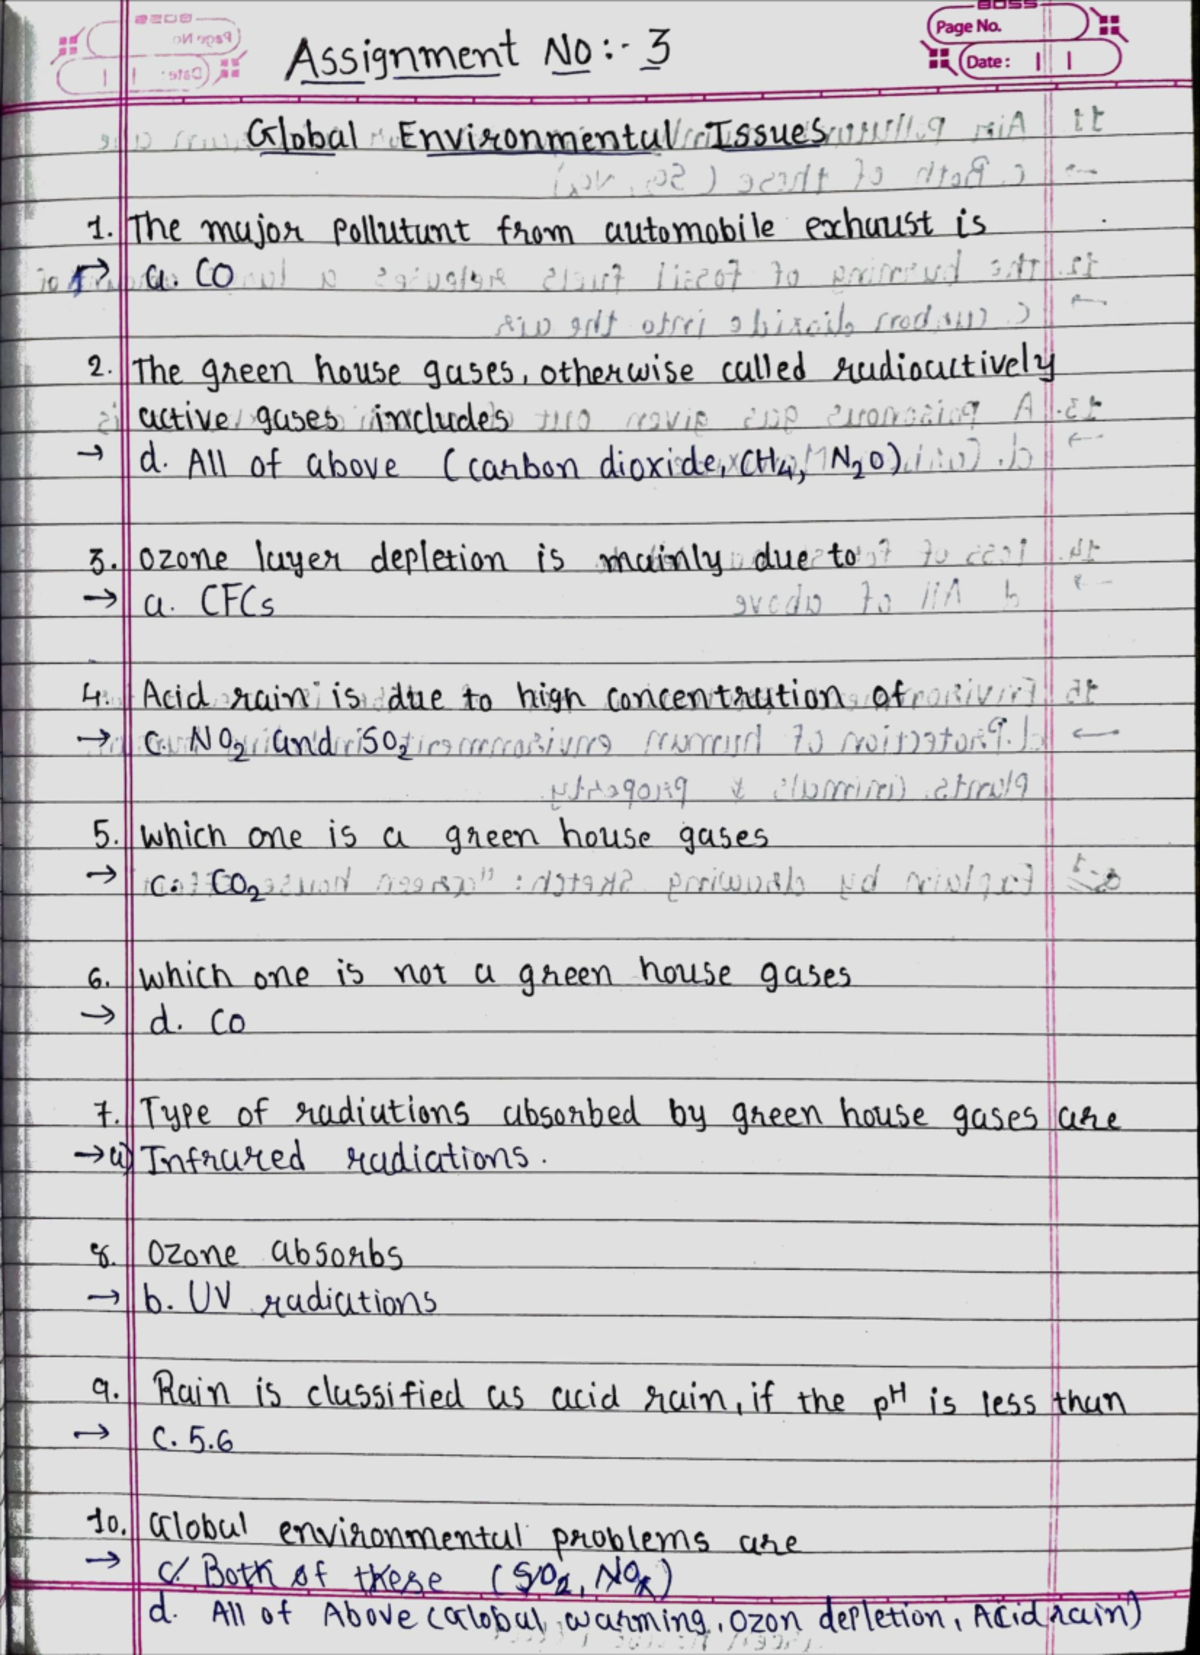 BOSS
Page No.
Date:
Assignment No:- 3
Global Environmental Issues
1. The major pollutant from automobile exhaust is
→ a. CO
2. The green house gases, otherwise called radioactively
active gases includes
→ d. All of above (carbon dioxide, CH4, N2O)
3. Ozone layer depletion is mainly due to
→ a. CFCs
4. Acid rain is due to high concentration of
→ c. NO2 and SO2
5. Which one is a green house gases
→ c. CO2
6. Which one is not a green house gases
→ d. CO
7. Type of radiations absorbed by green house gases are
→ a) Infrared radiations.
8. Ozone absorbs
→ b. UV radiations
9. Rain is classified as acid rain, if the pH is less than
→ C. 5.6
10. Global environmental problems are
→ c. Both of these (SO2, NOx)
d. All of Above (Global warming, Ozon depletion, Acid rain)